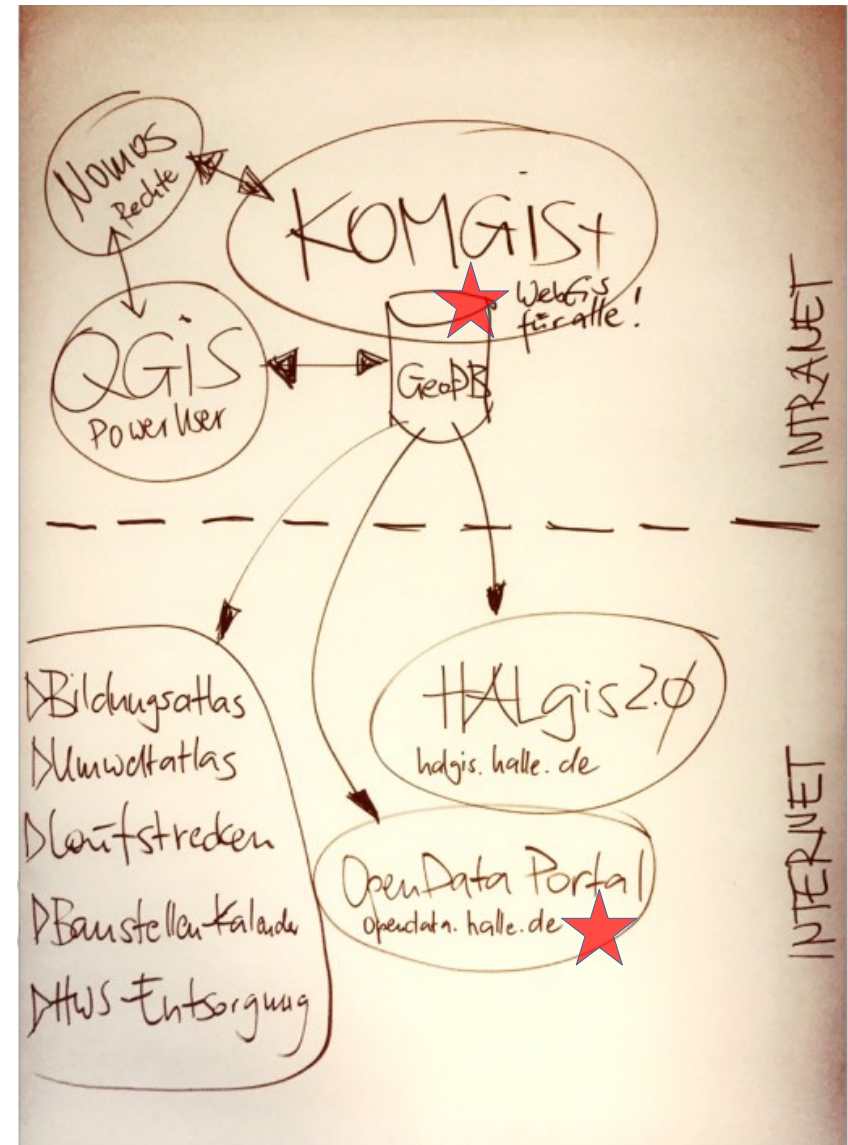 Nomos
Rechte
KOMGiS+
WebGis
für alle!
QGiS
PowerUser
GeoDB
INTRANET
▷Bildungsatlas
▷Umweltatlas
▷Laufstrecken
▷Baustellen-Kalender
▷HWS-Entsorgung
HALgis2.0
halgis.halle.de
OpenData Portal
opendata.halle.de
INTERNET